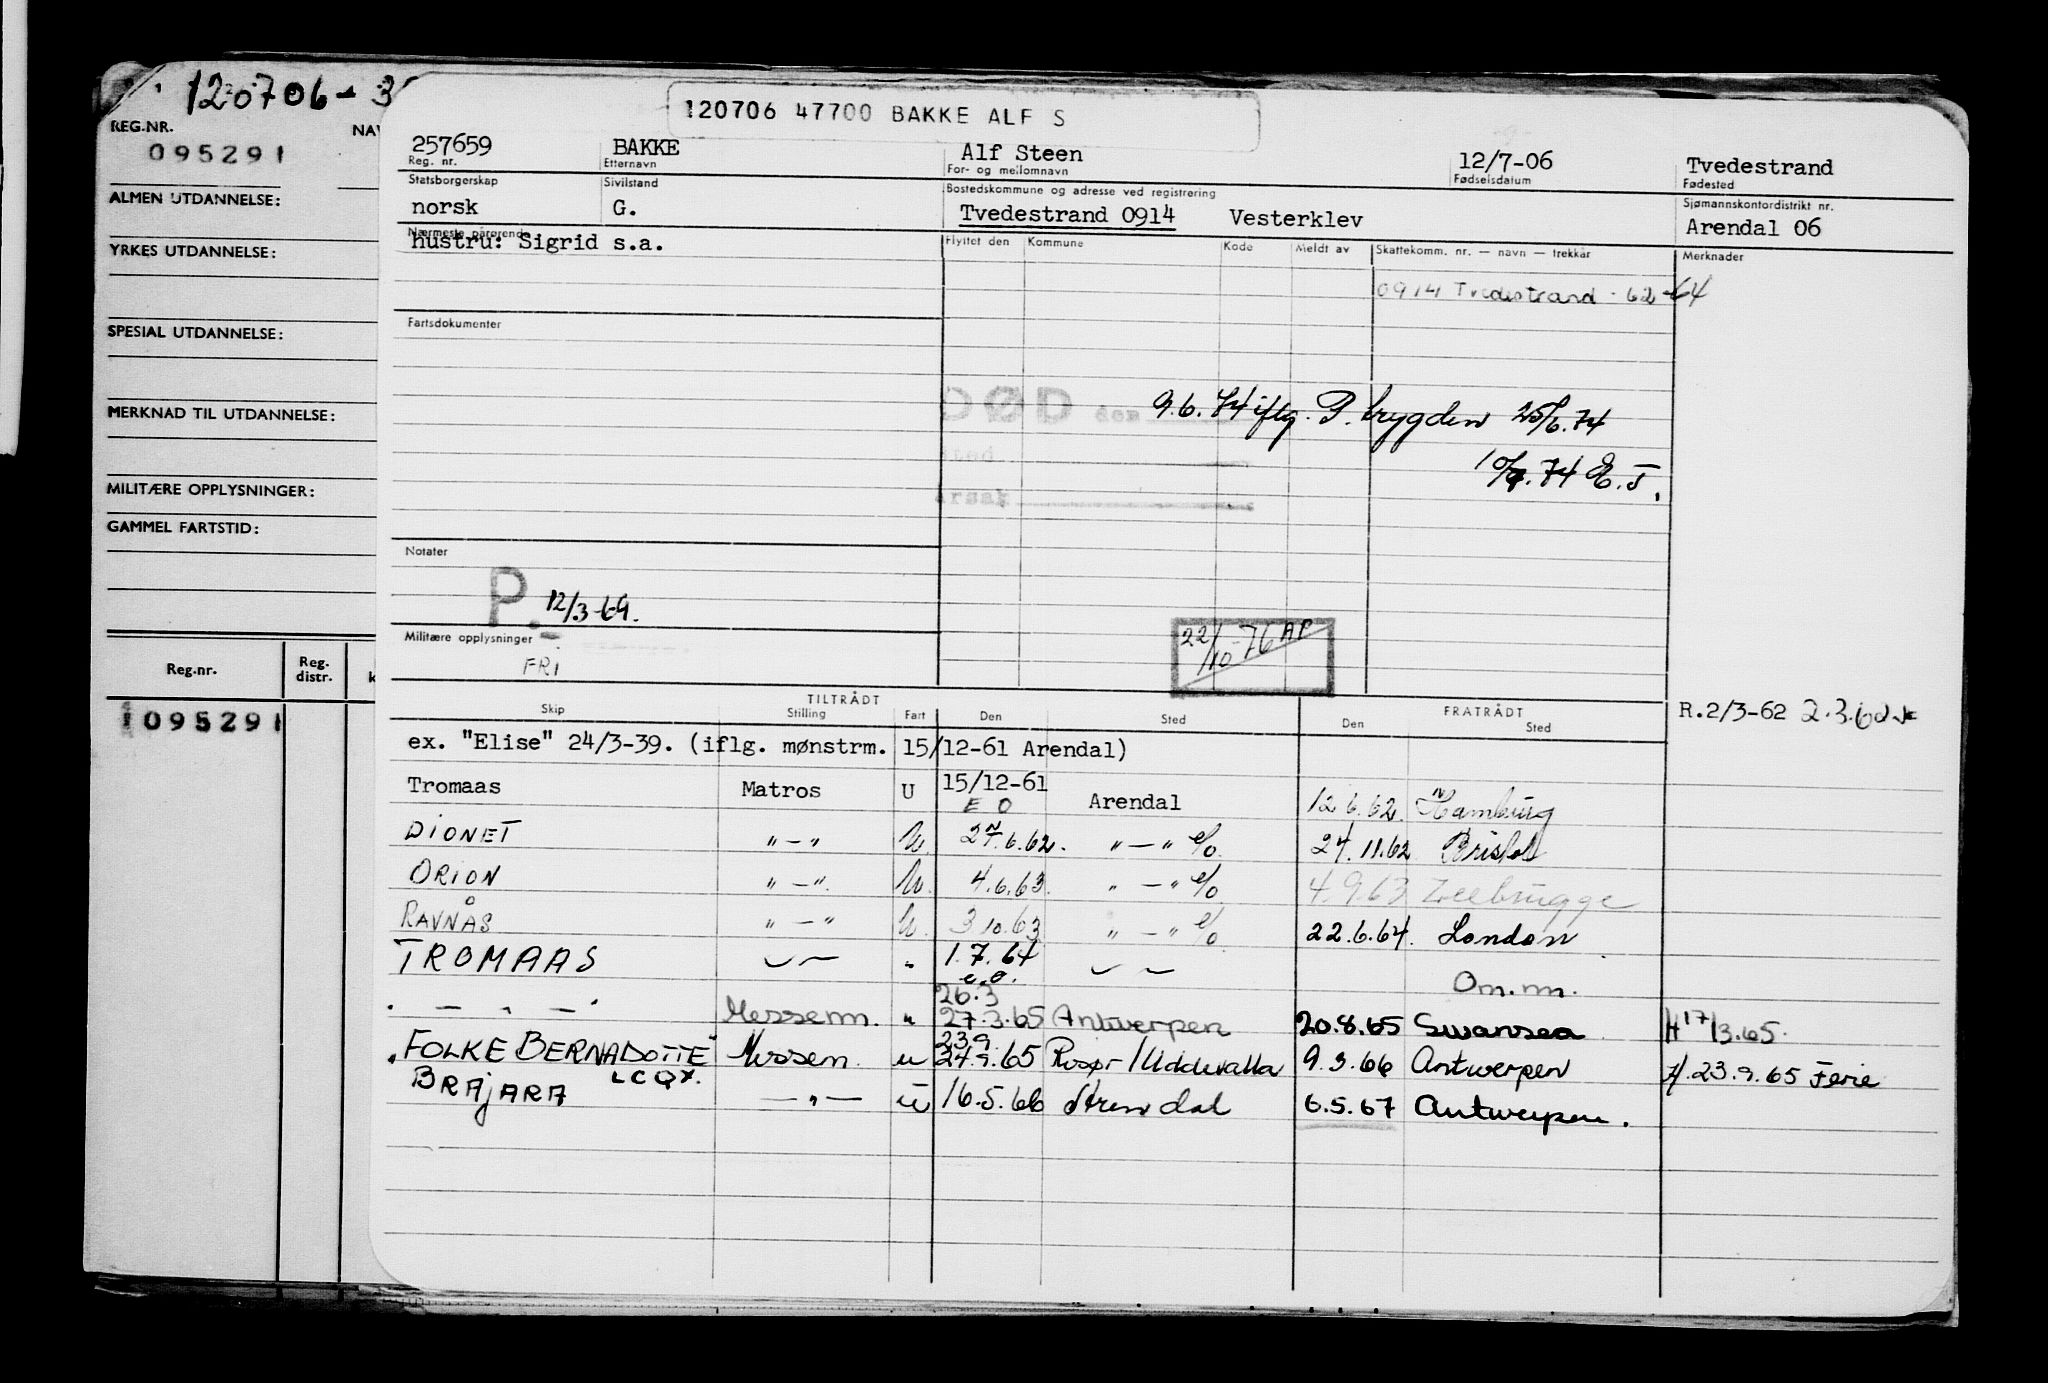 120706 - 3
REG.NR.
095291
ALMEN UTDANNELSE:
YRKES UTDANNELSE:
SPESIAL UTDANNELSE:
MERKNAD TIL UTDANNELSE:
MILITÆRE OPPLYSNINGER:
GAMMEL FARTSTID:
Reg.nr. Reg. distr.
1095291
120706 47700 BAKKE ALF S
257659 BAKKE Alf Steen 12/7-06 Tvedestrand
Reg. nr. Etternavn For- og mellomnavn Fødselsdatum Fødested
Statsborgerskap Sivilstand Bostedskommune og adresse ved registrering Sjømannskontordistrikt nr.
norsk G. Tvedestrand 0914 Vesterklev Arendal 06
Nærmeste pårørende Flyttet den Kommune Kode Meldt av Skattekomm. nr. — navn — trekkår Merknader
hustru: Sigrid s.a.
0914 Tvedestrand - 62-64
Fartsdokumenter
DØD den 9.6.74 iflg. P. trygden 25/6.74
sted 10/9.74 E.J.
årsak
Notater
P. 12/3-69.
Militære opplysninger
FRI
22/10-76 AP
TILTRÅDT FRATRÅDT R.2/3-62
Skip Stilling Fart Den Sted Den Sted
ex. "Elise" 24/3-39. (iflg. mønstrm. 15/12-61 Arendal)
Tromaas Matros U 15/12-61 Arendal 12.6.62. Hamburg
E O
DIONET " — " U 27.6.62. " — " e/o 24.11.62 Bristol
ORION " — " U. 4.6.63. " — " e/o 4.9.63 Zeebrugge
RAVNÅS " — " U. 3.10.63 " — " e/o 22.6.64. London
TROMAAS " 1.7.64
e.o. Om.m.
26.3
" — " — " Messem. " 27.3.65 Antwerpen 20.8.65 Swansea H 17/3.65.
23.9
"FOLKE BERNADOTTE" Messem. u 24.9.65 Risør/Uddevalla 9.3.66 Antwerpen H. 23.9.65 Ferie
LCQX.
BRAJARA — " — u 16.5.66 Arendal 6.5.67 Antwerpen.